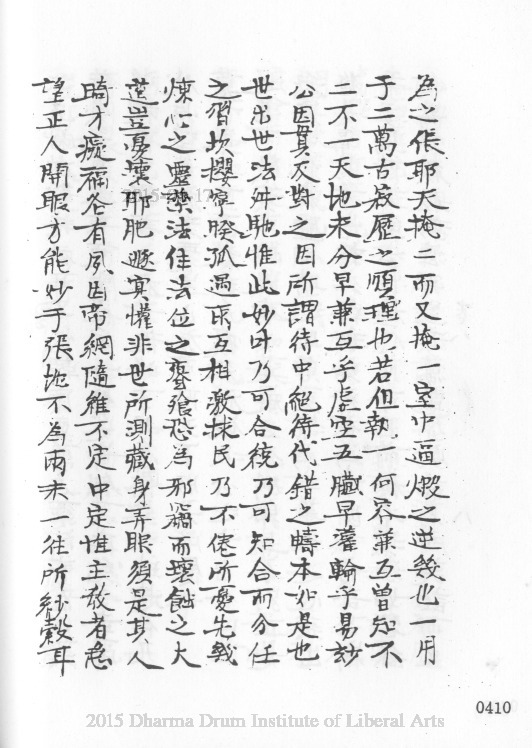 為之張耶天掩二而又掩一室中逼煅之逆幾也一用
于二萬古寂歷之順理也若但執一何容兼互曾知不
二不一天地未分早兼互乎虛空五臟早灌輪乎易玅
公因貫反對之因所謂待中絕待代錯之幬本如是也
世出世法舛馳惟此妙叶乃可合統乃可知合而分任
之習坎攖寧睽孤遇雨互相激捄民乃不倦所憂先幾
煉心之靈藥法住法位之饔飧恐為邪竊而壞蝕之大
蓮豈憂壞耶肥遯寘懽非世所測藏身弄眼須是其人
畸才癡福各有夙因帝網隨維不定中定惟主教者急
望正人開眼方能妙于張弛不為兩末一往所紗縠耳
0410
2015 Dharma Drum Institute of Liberal Arts